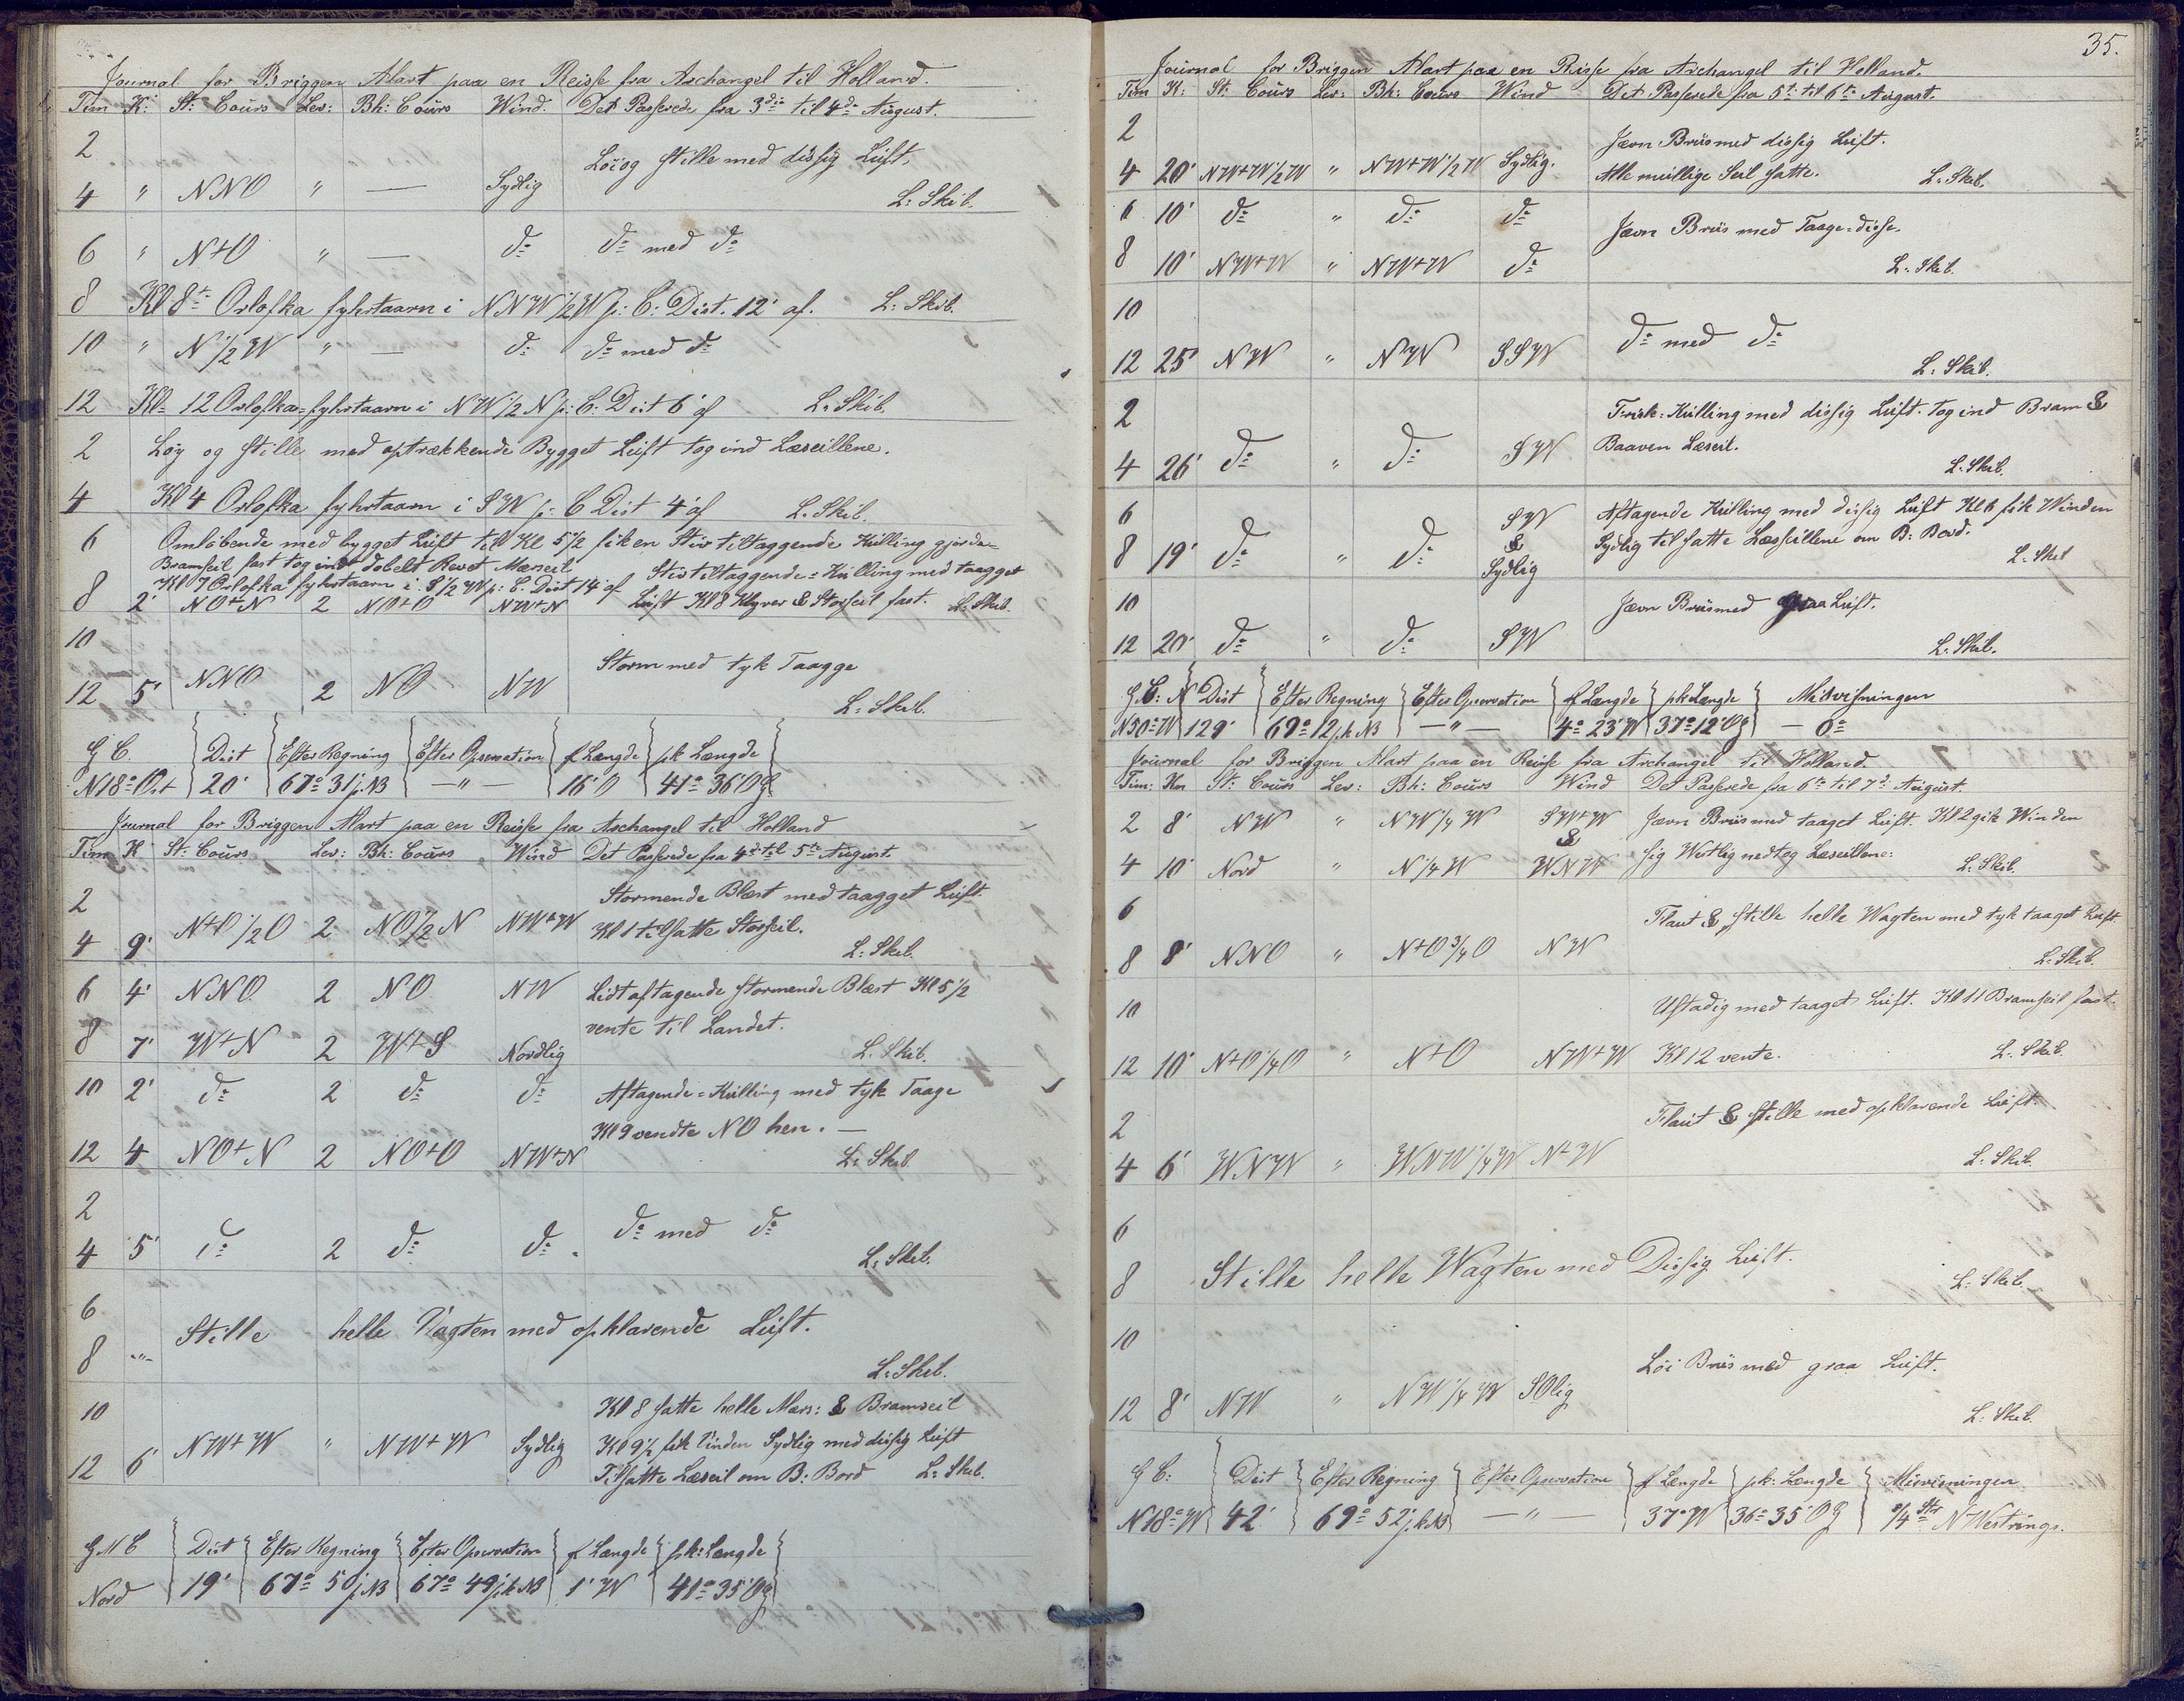 Journal for Briggen Mart paa en Reisse fra Archangel til Holland.
Tim K: St: Cours Lev: Bh: Cours Wind. Det Passerede fra 3die til 4de August.
2 Löi og stille med dissig Luft.
4 " NNO " — Sydlig L: Skib.
6 " N+O " — do do med do
8 Kl 8te Orlofka fyhrtaarn i NNW 1/2 W p: C: Dist. 12' af. L: Skib.
10 " N 1/2 W " — do do med do
12 Kl= 12 Orlofka=fyhrtaarn i NW 1/2 N p: C: Dist 6' af L: Skib.
2 Løy og stille med optrækkende Bygget Luft tog ind Læseillene.
4 Kl 4 Orlofka fyhrtaarn i SW p: C Dist 4' af L: Skib.
6 Omløbende med bygget Luft til Kl 5 1/2 fik en Stiv tiltaggende Kulling gjorde=
Bramseil fast tog indt dobelt Revet Mærseil
Kl 7 Orlofka fyhrtaarn i S 1/2 W p: C. Dist 14' af Stiv tiltaggende=Kulling med taagget
8 2' NO+N 2 NO+O NW+N Luft Kl 8 Klyver & Storseil fast. L: Skib.
10 Storm med tyk Taagge
12 5' NNO 2 NO NW L: Skib.
G C. Dist Efter Regning Efter Opservation f Længde pk Længde
N18°Ost 20' 67° 31 p. NB — " — 16' O 41° 36' Og
Journal for Briggen Mart paa en Reisse fra Archangel til Holland
Tim K St: Cours Lev: Bh: Cours Wind Det Passerede fra 4de til 5te August.
2 Stormende Blæst med taagget Luft.
4 9' N+O 1/2 O 2 NO 1/2 N NW+W Kl 1 tilsatte Storseil. L: Skib.
6 4' NNO 2 NO NW Lidt aftagende stormende Blæst Kl 5 1/2
8 7' W+N 2 W+S Nordlig vente til Landet. L. Skib.
10 2' do 2 do do Aftagende=Kulling med tyk Taage
Kl 9 vendte NO hen. —
12 4 NO+N 2 NO+O NW+N L: Skib.
2 do med do
4 5' do 2 do do L: Skib.
6 Stille helle Vagten med opklarende Luft.
8 " L: Skib.
10 Kl 8 satte helle Mærs: & Bramseil
NW+W " NW+W Sydlig Kl 9 1/2 fik Vinden Sydlig med dissig Luft
12 6' Tilsatte Læseil om B: Bord L: Skib.
G M C Dist Efter Regning Efter Opservation f Længde pk: Længde
Nord 19' 67° 50 p. NB 67° 49 pk NB 1' W 41° 35' Og
35.
Journal for Briggen Mart paa en Reisse fra Archangel til Holland.
Tim K: St: Cours Lev: Bk: Cours Wind Det Passerede fra 5te til 6te August.
2 Jævn Briis med dissig Luft.
4 20' NW+W 1/2 W " NW+W 1/2 W Sydlig. Alle muilige Seil satte. L: Skib.
6 10' do " do do Jævn Briis med Taage=disse.
8 10' NW+W " NW+W do L: Skib.
10 do med do
12 25' NW " NW SSW L: Skib.
2 Frisk=Kulling med dissig Luft. tog ind Bram &
Baaven Læseil.
4 26' do " do SW L: Skib.
6 SW Aftagende Kulling med dissig Luft Kl 6 fik Winden
8 19' do " do & Sydlig Sydlig tilsatte Læsseillene om B: Bord. L: Skib
10 Jævn Briis med graa Luft.
12 20' do " do SW L: Skib.
G C: N Dist Efter Regning Efter Opservation f Længde pk Længde Misvisningen
N50°W 129' 69° 12 pk NB — " — 4° 23' W 37° 12' Og — 0°
Journal for Briggen Mart paa en Reisse fra Archangel til Holland.
Tim: Km St: Cours Lev: Bh: Cours Wind Det Passerede fra 6te til 7de August.
2 8' NW " NW 1/4 W SW+W Jævn Briis med taaget Luft. Kl 2 gik Winden
&
4 10' Nord " N 1/4 W WNW sig Westlig nedtog Læseillene: L: Skib.
6 Flaut & stille helle Wagten med tyk taaget Luft.
8 8' NNO " N+O 3/4 O NW L: Skib.
10 Ustadig med taaget Luft. Kl 11 Bramseil fast.
12 10' N+O 1/4 O " N+O NW+W Kl 12 vente. L: Skib.
2 Flaut & stille med opklarende Luft.
4 6' WNW " WNW 1/4 W N+W L: Skib.
6
8 Stille helle Wagten med Dissig Luft. L: Skib.
10 Löi Briis med graa Luft.
12 8' NW " NW 1/4 W SOlig L: Skib.
G C: Dist Efter Regning Efter Opservation f Længde pk: Længde Misvisningen
N18°W 42' 69° 52' pk NB — " — 37' W 36° 35' Og 3/4 Str N Westrings.